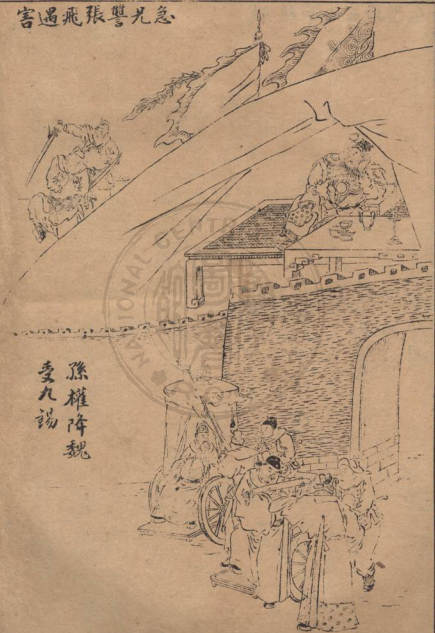 急兄讐張飛遇害
孫權降魏
受九錫
NATIONAL CENTR